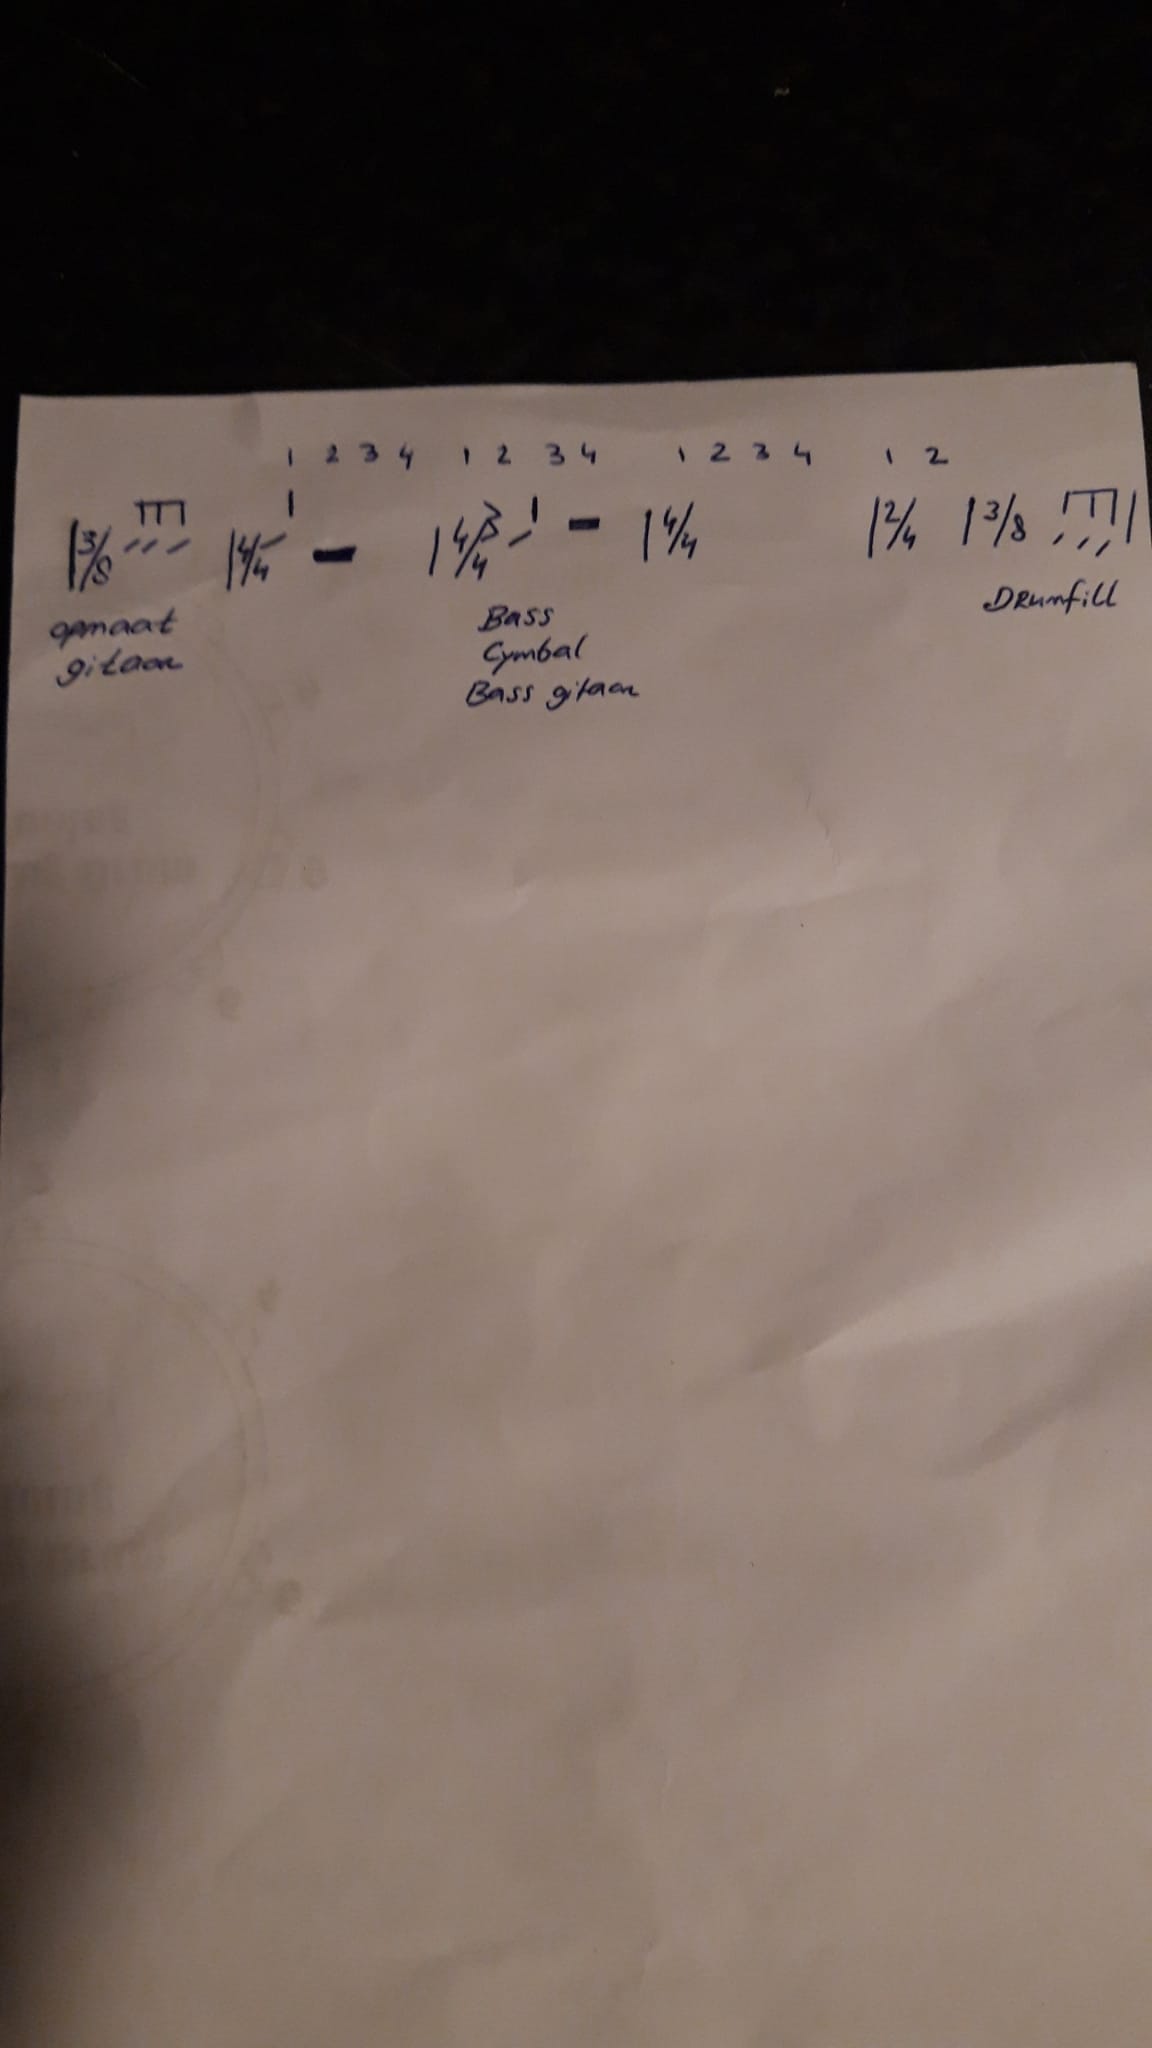 1 2 3 4 1 2 3 4 1 2 3 4 1 2
3/8 4/4 - 4/4 - 4/4 2/4 3/8
opmaat Bass Drumfill
gitaar Cymbal
Bass gitaar